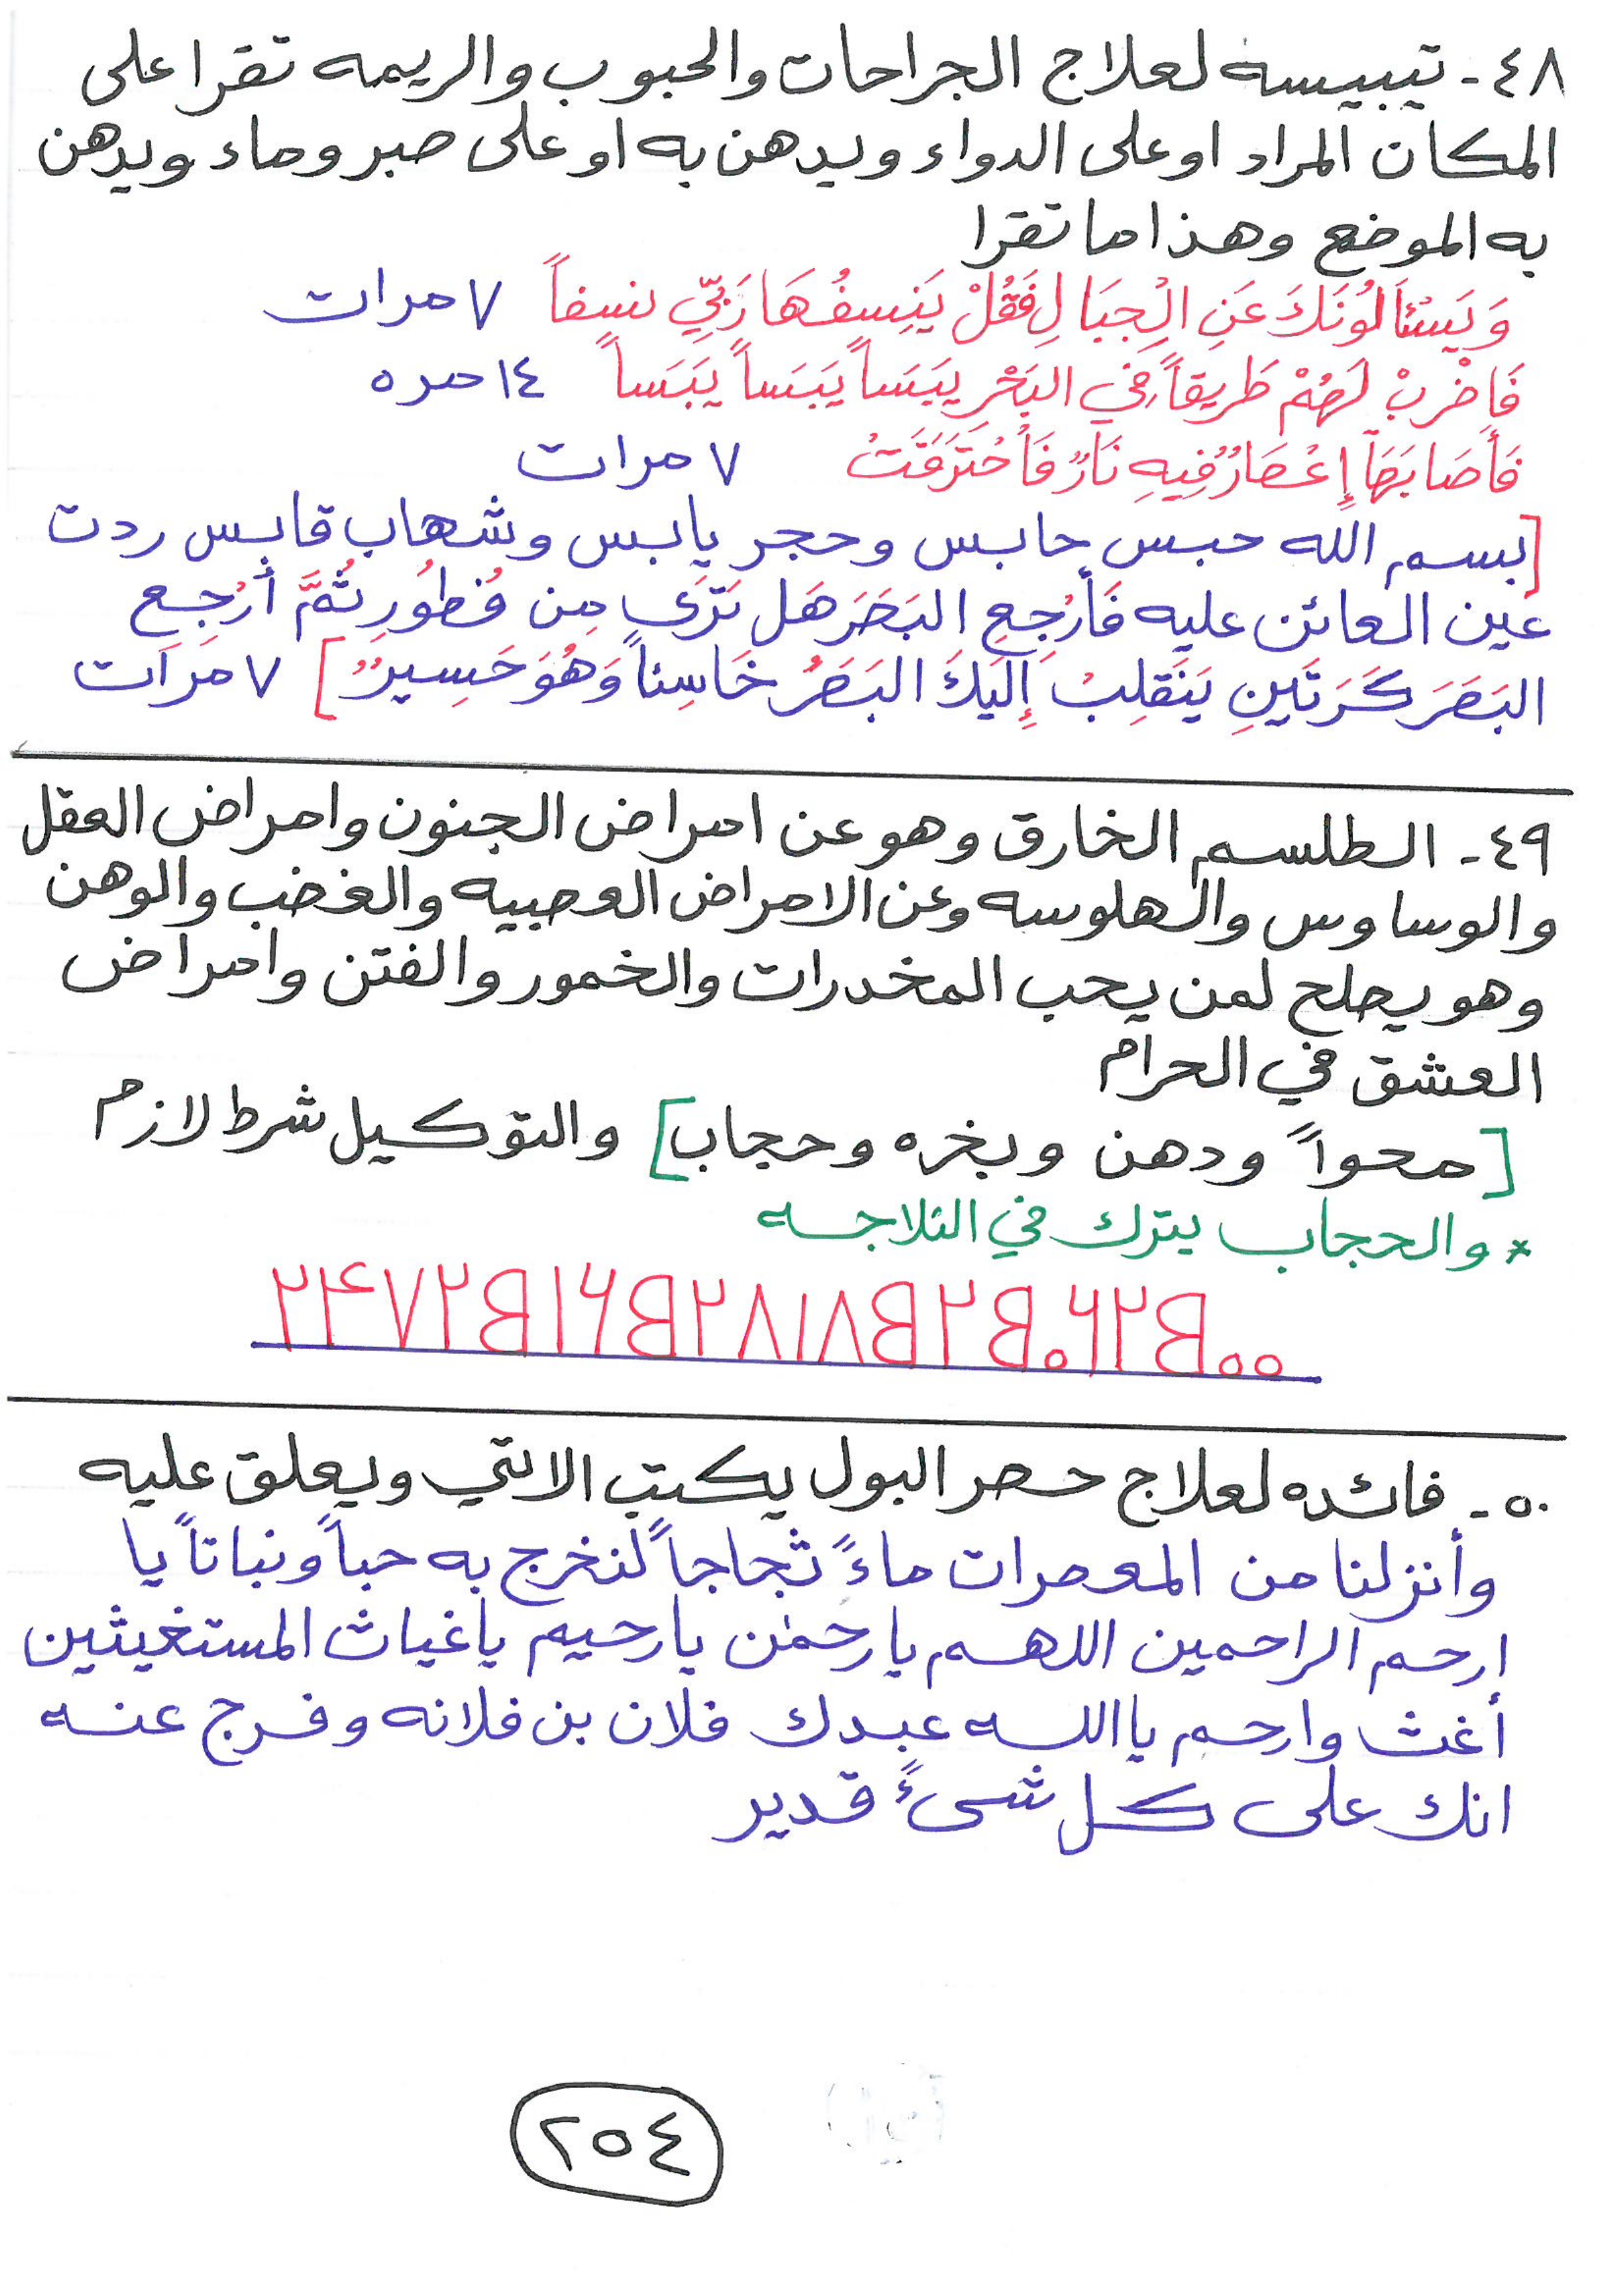 ٤٨- تيبيسه لعلاج الجراحات والحبوب والريمه تقرا على
المكان المراد او على الدواء ويدهن به او على صبر وماء ويدهن
به الموضع وهذا ما تقرا
وَيَسْئَالُونَكَ عَنِ الْجِبَالِ فَقُلْ يَنسِفُهَا رَبِّي نسفاً ٧ مرات
فَاضْرِبْ لَهُمْ طَرِيقاً فِي البَحْرِ يَبَساً يَبَساً يَبَساً ١٤ مره
فَأَصَابَهَا إِعْصَارٌ فِيهِ نَارٌ فَاحْتَرَقَتْ ٧ مرات
[بسم الله حبس حابس وحجر يابس وشهاب قابس ردت
عين العائن عليه فَأرْجِعِ البَصَرَ هَل تَرَى مِن فُطُورٍ ثُمَّ أرْجِعِ
البَصَرَ كَرَتَينِ يَنقَلِبْ إِلَيكَ البَصَرُ خَاسِئاً وَهُوَ حَسِيرٌ] ٧ مرات
٤٩- الطلسم الخارق وهو عن امراض الجنون وامراض العقل
والوساوس والهلوسه وعن الامراض العصبيه والغضب والوهن
وهو يصلح لمن يحب المخدرات والخمور والفتن وامراض
العشق في الحرام
[محواً ودهن وبخره وحجاب] والتوكيل شرط لازم
* والحجاب يترك في الثلاجه
٥٠- فائده لعلاج حصر البول يكتب الاتي ويعلق عليه
وأنزلنا من المعصرات ماءً ثجاجاً لنخرج به حباً ونباتاً يا
ارحم الراحمين اللهم يا رحمٰن يا رحيم يا غياث المستغيثين
أغث وارحم يا الله عبدك فلان بن فلانه وفرج عنه
انك على كل شىءً قدير
٢٥٤